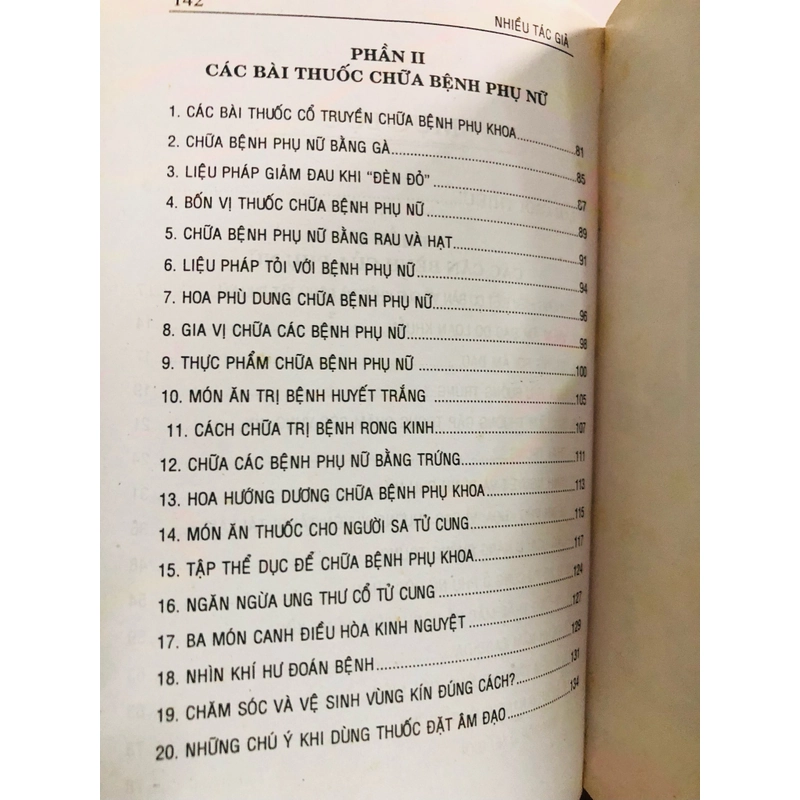 142
NHIỀU TÁC GIẢ
PHẦN II
CÁC BÀI THUỐC CHỮA BỆNH PHỤ NỮ
1. CÁC BÀI THUỐC CỔ TRUYỀN CHỮA BỆNH PHỤ KHOA 81
2. CHỮA BỆNH PHỤ NỮ BẰNG GÀ 85
3. LIỆU PHÁP GIẢM ĐAU KHI “ĐÈN ĐỎ” 87
4. BỐN VỊ THUỐC CHỮA BỆNH PHỤ NỮ 89
5. CHỮA BỆNH PHỤ NỮ BẰNG RAU VÀ HẠT 91
6. LIỆU PHÁP TỎI VỚI BỆNH PHỤ NỮ 94
7. HOA PHÙ DUNG CHỮA BỆNH PHỤ NỮ 96
8. GIA VỊ CHỮA CÁC BỆNH PHỤ NỮ 98
9. THỰC PHẨM CHỮA BỆNH PHỤ NỮ 100
10. MÓN ĂN TRỊ BỆNH HUYẾT TRẮNG 105
11. CÁCH CHỮA TRỊ BỆNH RONG KINH 107
12. CHỮA CÁC BỆNH PHỤ NỮ BẰNG TRỨNG 111
13. HOA HƯỚNG DƯƠNG CHỮA BỆNH PHỤ KHOA 113
14. MÓN ĂN THUỐC CHO NGƯỜI SA TỬ CUNG 115
15. TẬP THỂ DỤC ĐỂ CHỮA BỆNH PHỤ KHOA 117
16. NGĂN NGỪA UNG THƯ CỔ TỬ CUNG 124
17. BA MÓN CANH ĐIỀU HÒA KINH NGUYỆT 127
18. NHÌN KHÍ HƯ ĐOÁN BỆNH 129
19. CHĂM SÓC VÀ VỆ SINH VÙNG KÍN ĐÚNG CÁCH? 131
20. NHỮNG CHÚ Ý KHI DÙNG THUỐC ĐẶT ÂM ĐẠO 134